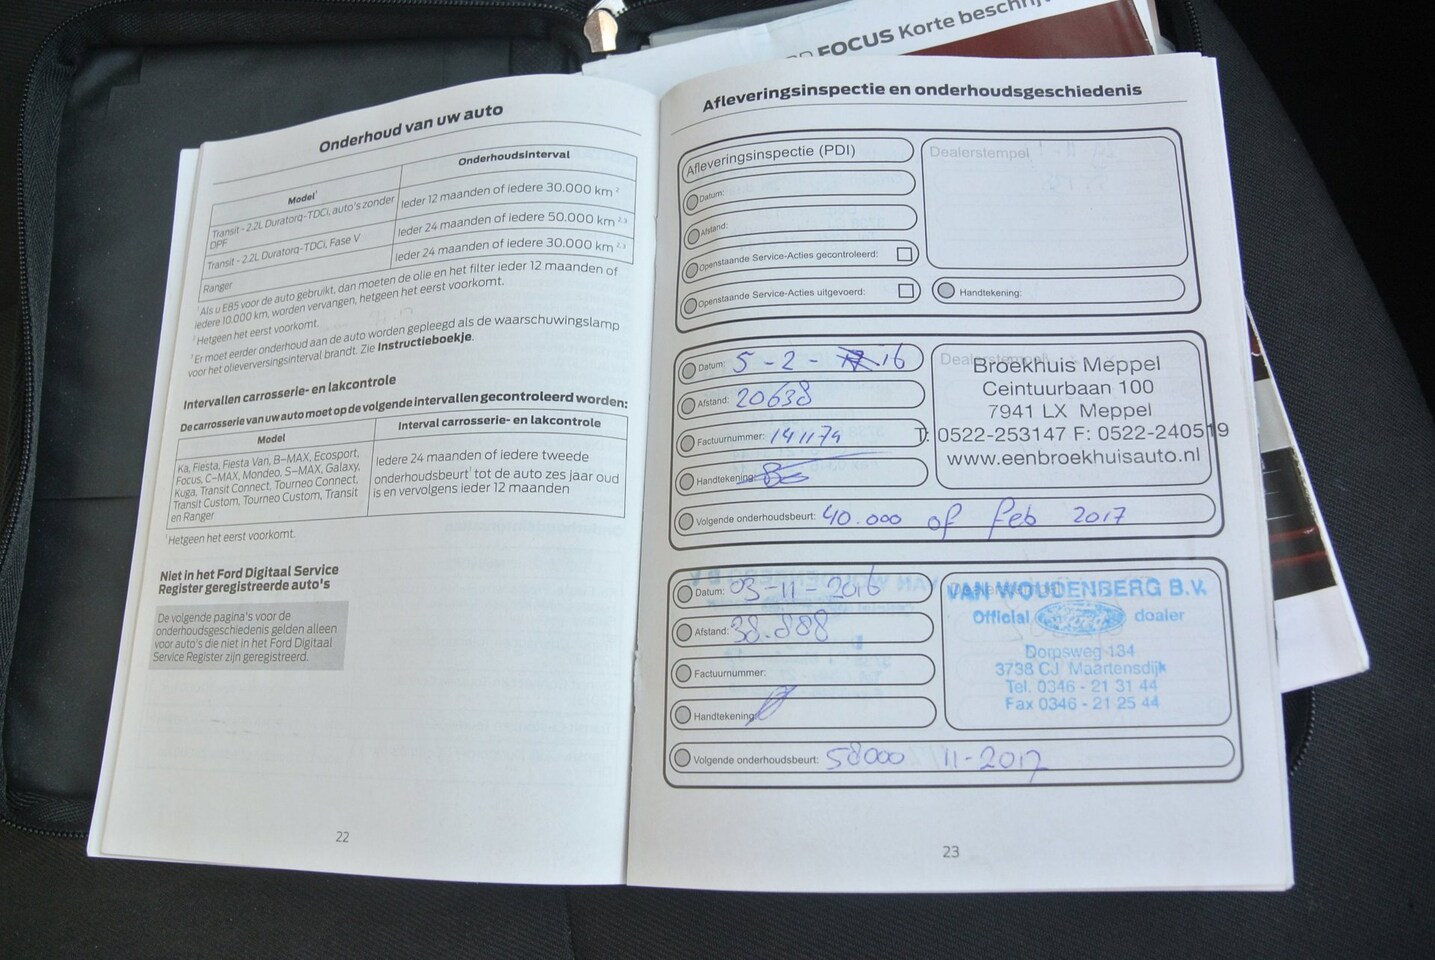 FOCUS Korte
Onderhoud van uw auto
Model¹
Onderhoudsinterval
Transit - 2.2L Duratorq-TDCi, auto's zonder
DPF
Ieder 12 maanden of iedere 30.000 km ²
Transit - 2.2L Duratorq-TDCi, Fase V
Ieder 24 maanden of iedere 50.000 km ²˒³
Ranger
Ieder 24 maanden of iedere 30.000 km ²˒³
¹Als u E85 voor de auto gebruikt, dan moeten de olie en het filter ieder 12 maanden of
iedere 10.000 km, worden vervangen, hetgeen het eerst voorkomt.
²Hetgeen het eerst voorkomt.
³Er moet eerder onderhoud aan de auto worden gepleegd als de waarschuwingslamp
voor het olieverversingsinterval brandt. Zie Instructieboekje.
Intervallen carrosserie- en lakcontrole
De carrosserie van uw auto moet op de volgende intervallen gecontroleerd worden:
Model
Interval carrosserie- en lakcontrole
Ka, Fiesta, Fiesta Van, B-MAX, Ecosport,
Focus, C-MAX, Mondeo, S-MAX, Galaxy,
Kuga, Transit Connect, Tourneo Connect,
Transit Custom, Tourneo Custom, Transit
en Ranger
Iedere 24 maanden of iedere tweede
onderhoudsbeurt¹ tot de auto zes jaar oud
is en vervolgens ieder 12 maanden
¹Hetgeen het eerst voorkomt.
Niet in het Ford Digitaal Service
Register geregistreerde auto's
De volgende pagina's voor de
onderhoudsgeschiedenis gelden alleen
voor auto's die niet in het Ford Digitaal
Service Register zijn geregistreerd.
22
Afleveringsinspectie en onderhoudsgeschiedenis
Afleveringsinspectie (PDI)
Datum:
Afstand:
Openstaande Service-Acties gecontroleerd:
Openstaande Service-Acties uitgevoerd:
Dealerstempel
Handtekening:
Datum: 5-2-16
Afstand: 20638
Factuurnummer: 141174
Handtekening:
Volgende onderhoudsbeurt: 40.000 of feb 2017
Dealerstempel
Broekhuis Meppel
Ceintuurbaan 100
7941 LX Meppel
T: 0522-253147 F: 0522-240519
www.eenbroekhuisauto.nl
Datum: 03-11-2016
Afstand: 38.888
Factuurnummer:
Handtekening:
Volgende onderhoudsbeurt: 58000 11-2017
VAN WOUDENBERG B.V.
Official Ford dealer
Dorpsweg 134
3738 CJ Maartensdijk
Tel. 0346 - 21 31 44
Fax 0346 - 21 25 44
23